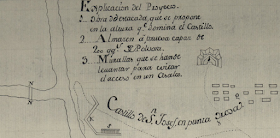 Explicacion del Proyecto.
1. Obra destacada, que se propone
en la altura q.e domina el Castillo.
2. Almazen á prueva capaz de
200 qq.s de Polvora.
3. Murallas que se han de
levantar para evitar
el acceso en un Atake.
Castillo de S.n Josef, en punta
N
N
S